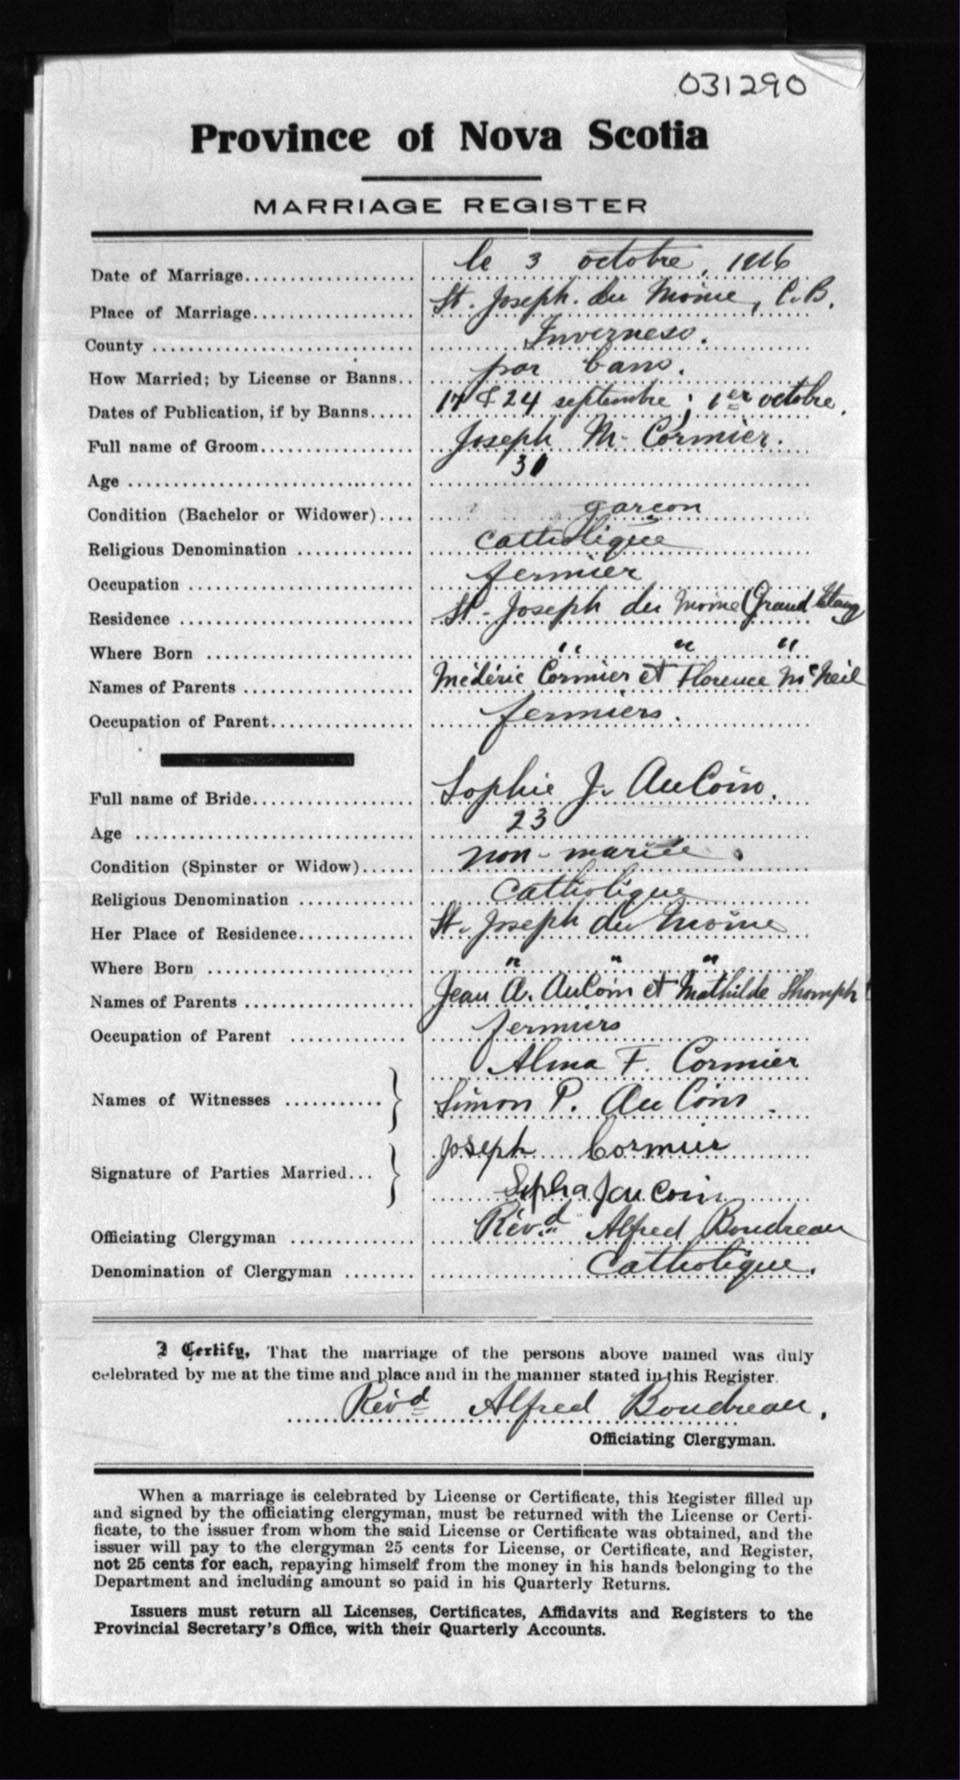 031290
Province of Nova Scotia
MARRIAGE REGISTER
Date of Marriage.................... le 3 octobre, 1916
Place of Marriage................... St. Joseph du Moine, C.B.
County .............................. Inverness.
How Married; by License or Banns.. par bans.
Dates of Publication, if by Banns..... 17 & 24 septembre; 1er octobre.
Full name of Groom.................. Joseph M. Cormier.
Age .................................. 31
Condition (Bachelor or Widower).... garcon
Religious Denomination .............. Catholique
Occupation .......................... fermier
Residence ........................... St. Joseph du Moine (Grand Etang
Where Born ........................ " " "
Names of Parents .................... Médéric Cormier et Florence McNeil
Occupation of Parent................. fermiers.
Full name of Bride................... Sophie J. AuCoin.
Age ................................. 23
Condition (Spinster or Widow)...... non-mariée.
Religious Denomination .............. Catholique
Her Place of Residence.............. St. Joseph du Moine
Where Born ........................ " " "
Names of Parents .................... Jean A. AuCoin et Mathilde
Occupation of Parent .............. fermiers
Alma F. Cormier
Names of Witnesses ........... } Simon P. AuCoin.
Joseph Cormier
Signature of Parties Married... }
Aucoin
Officiating Clergyman .............. Rév.d Alfred Boudreau
Denomination of Clergyman ........ Catholique.
I Certify, That the marriage of the persons above named was duly
celebrated by me at the time and place and in the manner stated in this Register.
Rév'd Alfred Boudreau.
Officiating Clergyman.
When a marriage is celebrated by License or Certificate, this Register filled up
and signed by the officiating clergyman, must be returned with the License or Certi-
ficate, to the issuer from whom the said License or Certificate was obtained, and the
issuer will pay to the clergyman 25 cents for License, or Certificate, and Register,
not 25 cents for each, repaying himself from the money in his hands belonging to the
Department and including amount so paid in his Quarterly Returns.
Issuers must return all Licenses, Certificates, Affidavits and Registers to the
Provincial Secretary's Office, with their Quarterly Accounts.